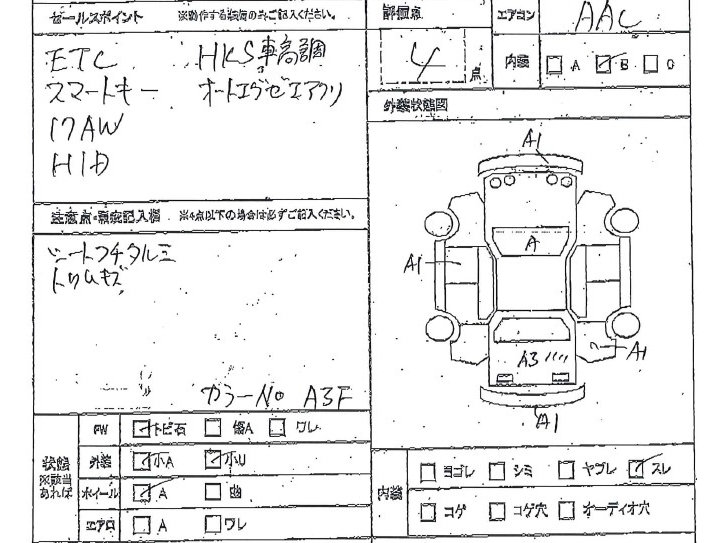 セールスポイント ※動作する装備のみご記入ください。
ETC HKS車高調
スマートキー オートエグゼエアクリ
17AW
HID
評価点
4 点
エアコン AAC
内装 □A ☑B □C
外装状態図
A1
A
A1
A3
A1
A1
注意点・瑕疵記入欄 ※4点以下の場合は必ずご記入ください。
シートフチタルミ
トリムキズ
カラーNo A3F
状態
※該当
あれば
FW ☑トビ石 □傷A □ワレ
外装 ☑小A ☑小U
ホイール ☑A □曲
エアロ □A □ワレ
内装
□ヨゴレ □シミ □ヤブレ ☑スレ
□コゲ □コゲ穴 □オーディオ穴